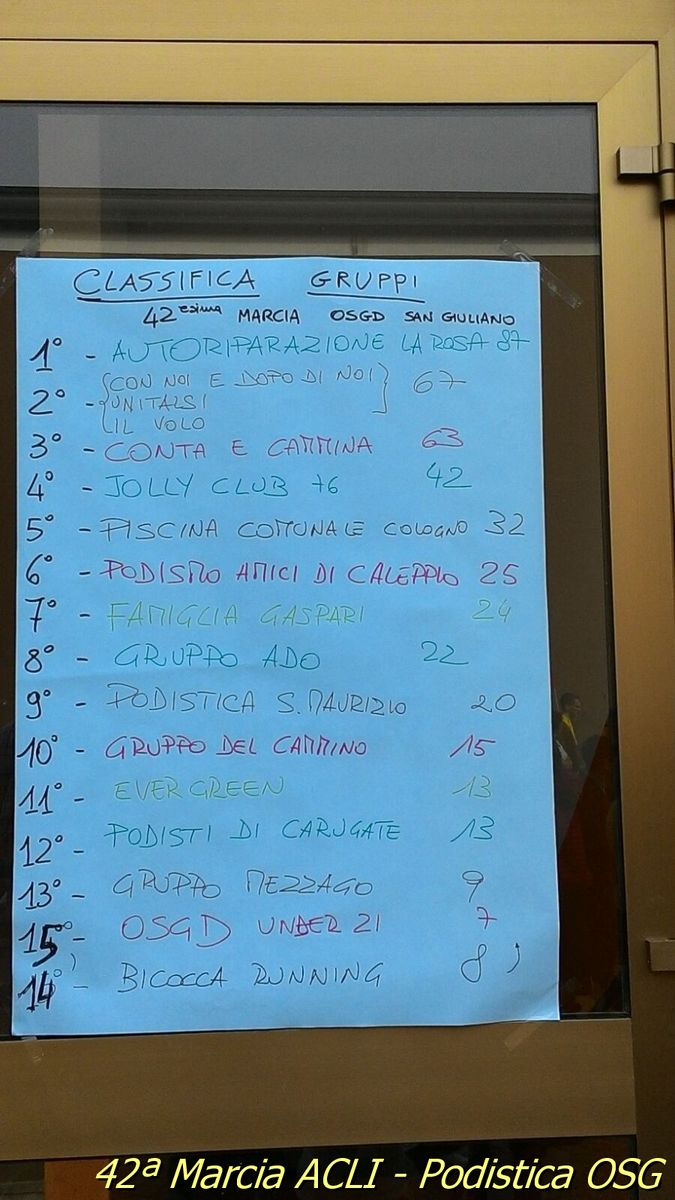 CLASSIFICA GRUPPI
42esima MARCIA OSGD SAN GIULIANO
1° - AUTORIPARAZIONE LA ROSA 87
2° - {CON NOI E DOPO DI NOI} 67
UNITALSI
IL VOLO
3° - CONTA E CAMMINA 63
4° - JOLLY CLUB 76 42
5° - PISCINA COMUNALE COLOGNO 32
6° - PODISMO AMICI DI CALEPPIO 25
7° - FAMIGLIA GASPARI 24
8° - GRUPPO ADO 22
9° - PODISTICA S. MAURIZIO 20
10° - GRUPPO DEL CAMMINO 15
11° - EVERGREEN 13
12° - PODISTI DI CARUGATE 13
13° - GRUPPO MEZZAGO 9
15° - OSGD UNDER 21 7
14° - BICOCCA RUNNING 8
42ª Marcia ACLI - Podistica OSG